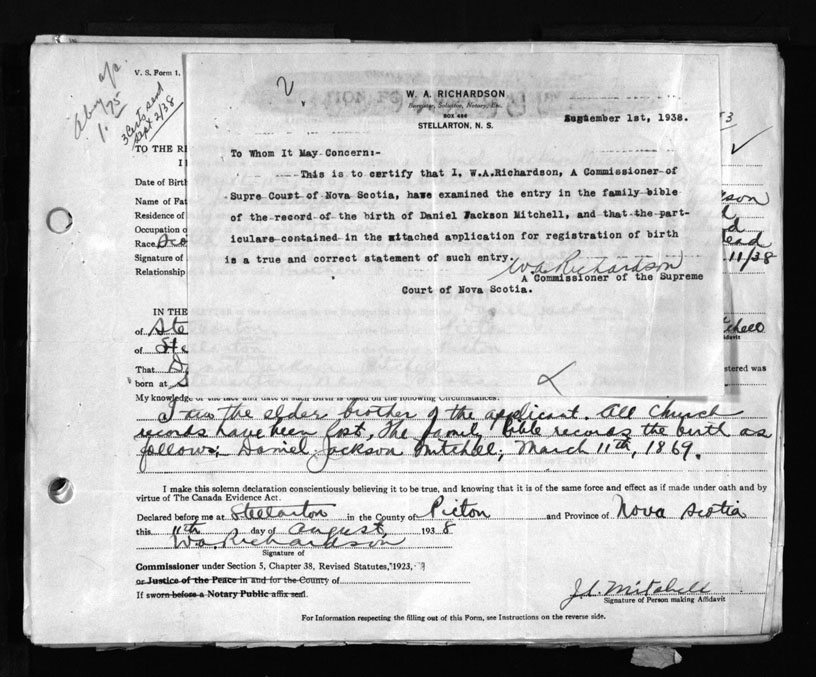 V. S. Form 1.
1.75
3 Certs send
Sept 2/38
2
W. A. RICHARDSON
Barrister, Solicitor, Notary, Etc.
BOX 486
STELLARTON, N. S.
September 1st, 1938.
To Whom It May Concern:-
This is to certify that I, W.A.Richardson, A Commissioner of
Supre Court of Nova Scotia, have examined the entry in the family bible
of the record of the birth of Daniel Jackson Mitchell, and that the part-
iculars contained in the attached application for registration of birth
is a true and correct statement of such entry.
W.A. Richardson
A Commissioner of the Supreme
Court of Nova Scotia.
TO THE R
I
Date of Birth
Name of Fat
Residence of
Occupation o
Race Sco
Signature of
Relationship
11/38
IN THE
of Ste
of Ste
That D
born at S
chell
davit
stered was
My knowledge of the fact and date of such birth is based on the following circumstances:
I am the elder brother of the applicant. All Church
records have been lost, The family Bible records the birth as
follows; Daniel Jackson Mitchell; March 11th, 1869.
I make this solemn declaration conscientiously believing it to be true, and knowing that it is of the same force and effect as if made under oath and by
virtue of The Canada Evidence Act.
Declared before me at Stellarton in the County of Picton and Province of Nova Scotia
this 11th day of August, 1938
W.A. Richardson
Signature of
Commissioner under Section 5, Chapter 38, Revised Statutes, 1923,
or Justice of the Peace in and for the County of
If sworn before a Notary Public affix seal.
J.L. Mitchell
Signature of Person making Affidavit
For Information respecting the filling out of this Form, see Instructions on the reverse side.